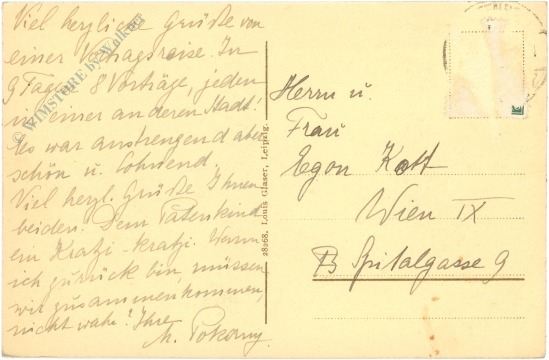 Viel herzliche Grüße von
einer Vortragsreise. In
9 Tagen 8 Vorträge, jeden
in einer anderen Stadt!
Es war anstrengend aber
schön u. lohnend.
Viel herzl. Grüße Ihnen
beiden. Dem Patenkind
ein Kratzi-kratzi. Wann
ich zurück bin, müssen
wir zusammenkommen,
nicht wahr? Ihre
M. Pokorny
© WIMSTORE by Walkner
28268, Louis Glaser, Leipzig.
Herrn u.
Frau
Egon Kott
Wien IX
Spitalgasse 9